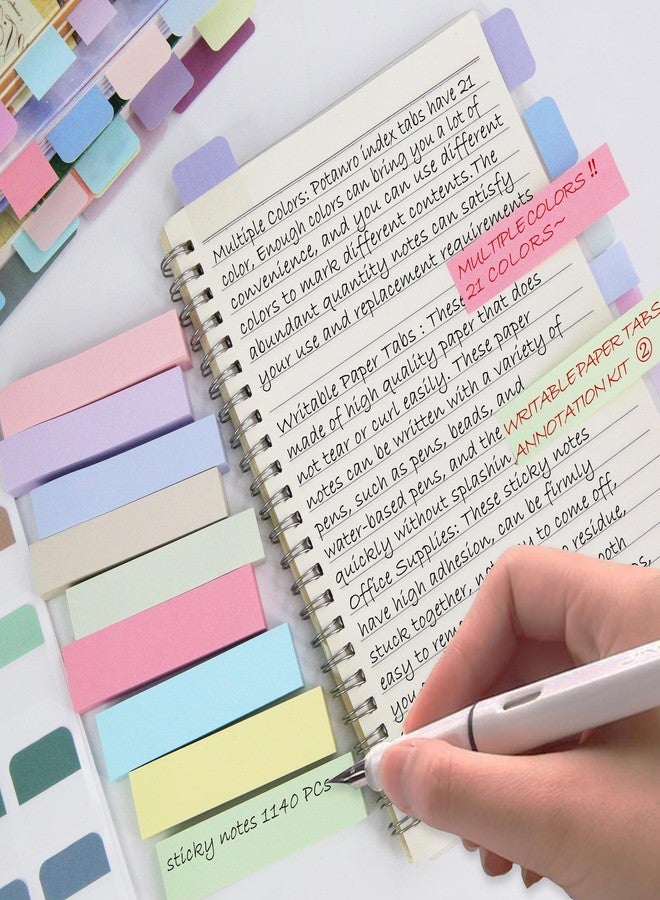 Multiple Colors: Potanro index tabs have 21
color, Enough colors can bring you a lot of
convenience, and you can use different
colors to mark different contents.The
abundant quantity notes can satisfy
your use and replacement requirements
MULTIPLE COLORS !!
21 COLORS~
Writable Paper Tabs : These
made of high quality paper that does
not tear or curl easily. These paper
notes can be written with a variety of
pens, such as pens, beads, and
water-based pens, and the
quickly without splashing
WRITABLE PAPER TABS
ANNOTATION KIT ②
Office Supplies: These sticky notes
have high adhesion, can be firmly
stuck together, not easy to come off,
easy to residue,
you
sticky notes 1140 PCs